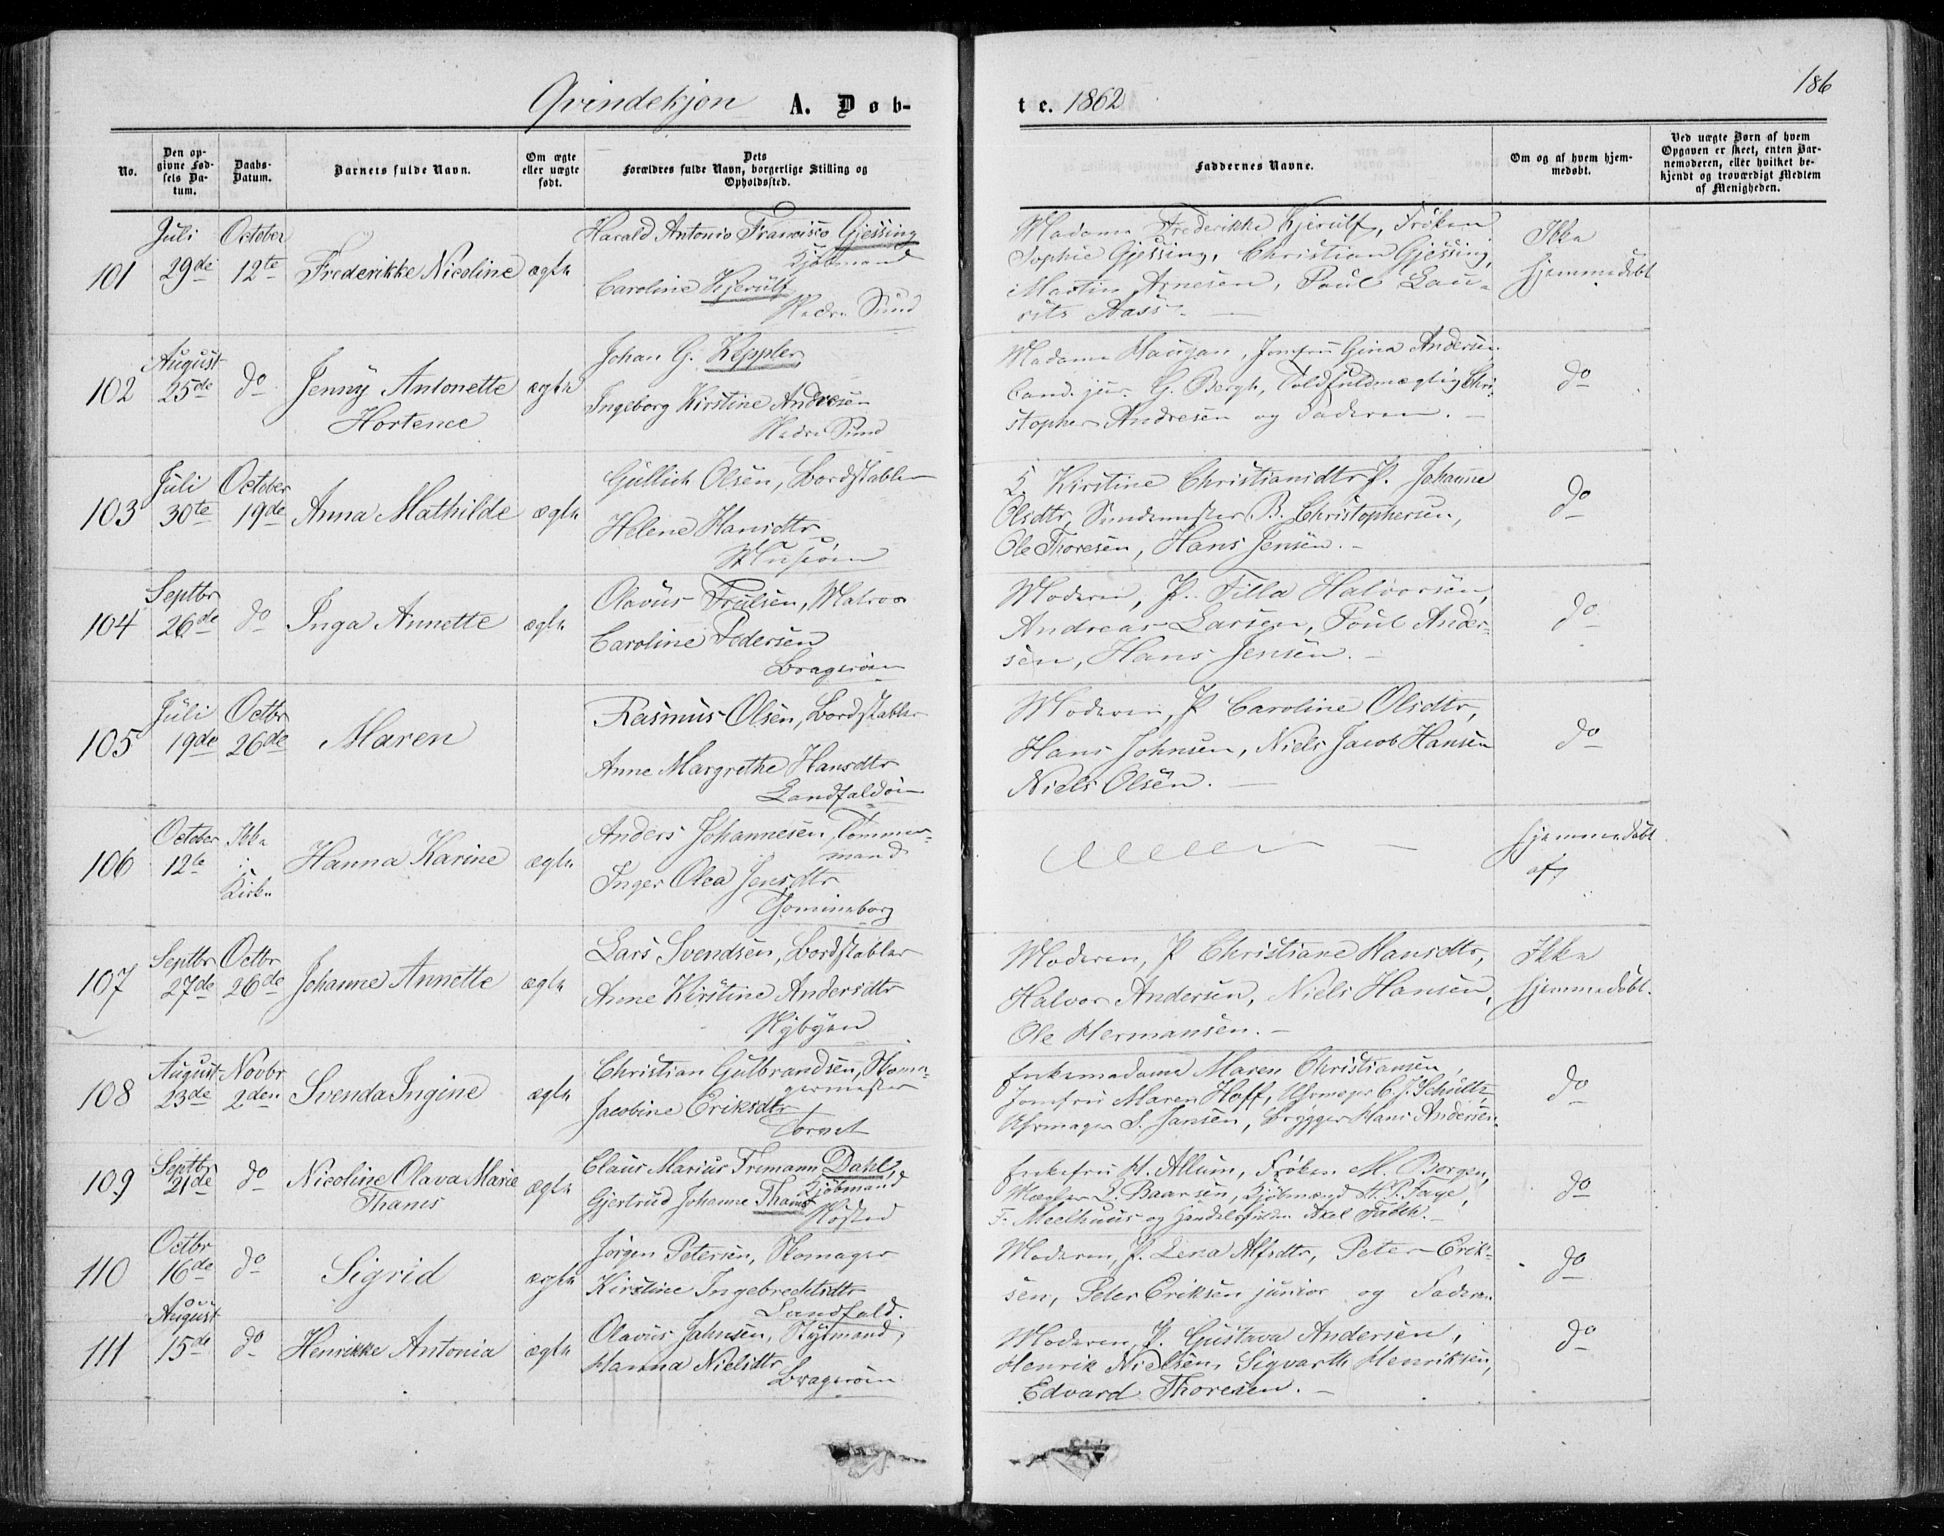 Qvindekjøn A. Døb-
te. 1862
186
No.
Den op-
givne Fød-
sels Da-
tum.
Daabs-
Datum.
Barnets fulde Navn.
Om ægte
eller uægte
født.
Dets
Forældres fulde Navn, borgerlige Stilling og
Opholdssted.
Faddernes Navne.
Om og af hvem hjem-
medøbt.
Ved uægte Børn af hvem
Opgaven er skeet, enten Bar-
nemoderen, eller hvilket be-
kjendt og troværdigt Medlem
af Menigheden.
101
Juli
29de
October
12te
Frederikke Nicoline
ægte
Harald Antonio Francisco Gjessing
Kjøbmand
Caroline Kjerulf
Nedre Sund
Madame Frederikke Kjerulf, Frøken
Sophie Gjessing, Christian Gjessing,
Martin Arnesen, Poul Lau-
rits Aass.
Ikke
hjemmedøbt
102
August
25de
do
Jenny Antonette
Hortence
ægte
Johan G. Keppler
Ingeborg Kirstine Andresen
Nedre Sund
Madame Haugan, Jomfru Gina Andersen
Cand. jur. G. Bergh, Toldfuldmægtig Chri-
stopher Andresen og Faderen.
do
103
Juli
30te
October
19de
Anna Mathilde
ægte
Gullich Olsen, Bordstabler
Helene Hansdtr
Kirstine Christiansdtr P. Johanne
Olsdtr, B. Christophersen,
Ole Thoresen, Hans Jensen.
do
104
Septbr
26de
do
Inga Annette
ægte
Olavus Trulsen, Matros
Caroline Pedersen
Bragerøen
Moderen, P. Tilla Halvorsen,
Andreas Larsen, Poul Ander-
sen, Hans Jensen.
do
105
Juli
19de
Octbr
26de
Maren
Rasmus Olsen, Bordstabler
Anne Margrethe Hansdtr
Landfaldøen
Moderen, P Caroline Olsdtr,
Hans Johnsen, Niels Jacob Hansen
Niels Olsen.
do
106
October
12te
Ikke
i
Kirke
Hanna Karine
ægte
Anders Johannesen, Tømmer-
mand
Inger Olea Jensdtr
Tomineborg
hjemmedøbt
af
107
Septbr
27de
Octbr
26de
Johanne Annette
ægte
Lars Svendsen, Bordstabler
Anne Kirstine Andersdtr
Nybyen
Moderen, P Christiane Hansdtr,
Halvor Andersen, Niels Hansen,
Ole Hermansen.
Ikke
hjemmedøbt.
108
August
23de
Novbr
2den
Svenda Ingine
ægte
Christian Gulbrandsen, Skoma-
germester
Jacobine Eriksdtr
Torvet
Enkemadame Maren Christiansen,
Jomfru Maren Hoff, Uhrmager C. J. Schultz
Uhrmager S. Jansen, Brygger Hans Andersen.
do
109
Septbr
21de
do
Nicoline Olava Marie
Thams
ægte
Claus Marius Tremann Dahl,
Kjøbmand
Gjertrud Johanne Thams
Enkefru H. Allum, Frøken M. Borgen,
Mægler L. Baarsen, Kjøbmænd H. P. Faye,
F. Meelhuus og Handelsfuldm. Axel Falch.
do
110
Octbr
16de
do
Sigrid
ægte
Jørgen Petersen, Skomager
Kirstine Ingebrechtsdtr
Landfald.
Moderen, P. Lena Alfsdtr, Peter Erik-
sen, Peter Eriksen junior og Faderen
do
111
August
15de
do
Henrikke Antonia
ægte
Olavus Jahnsen,
Hanna Nielsdtr
Bragerøen
Moderen, P. Gustava Andersen,
Henrik Nielsen, Sigvarth Henriksen,
Edvard Thoresen.
do